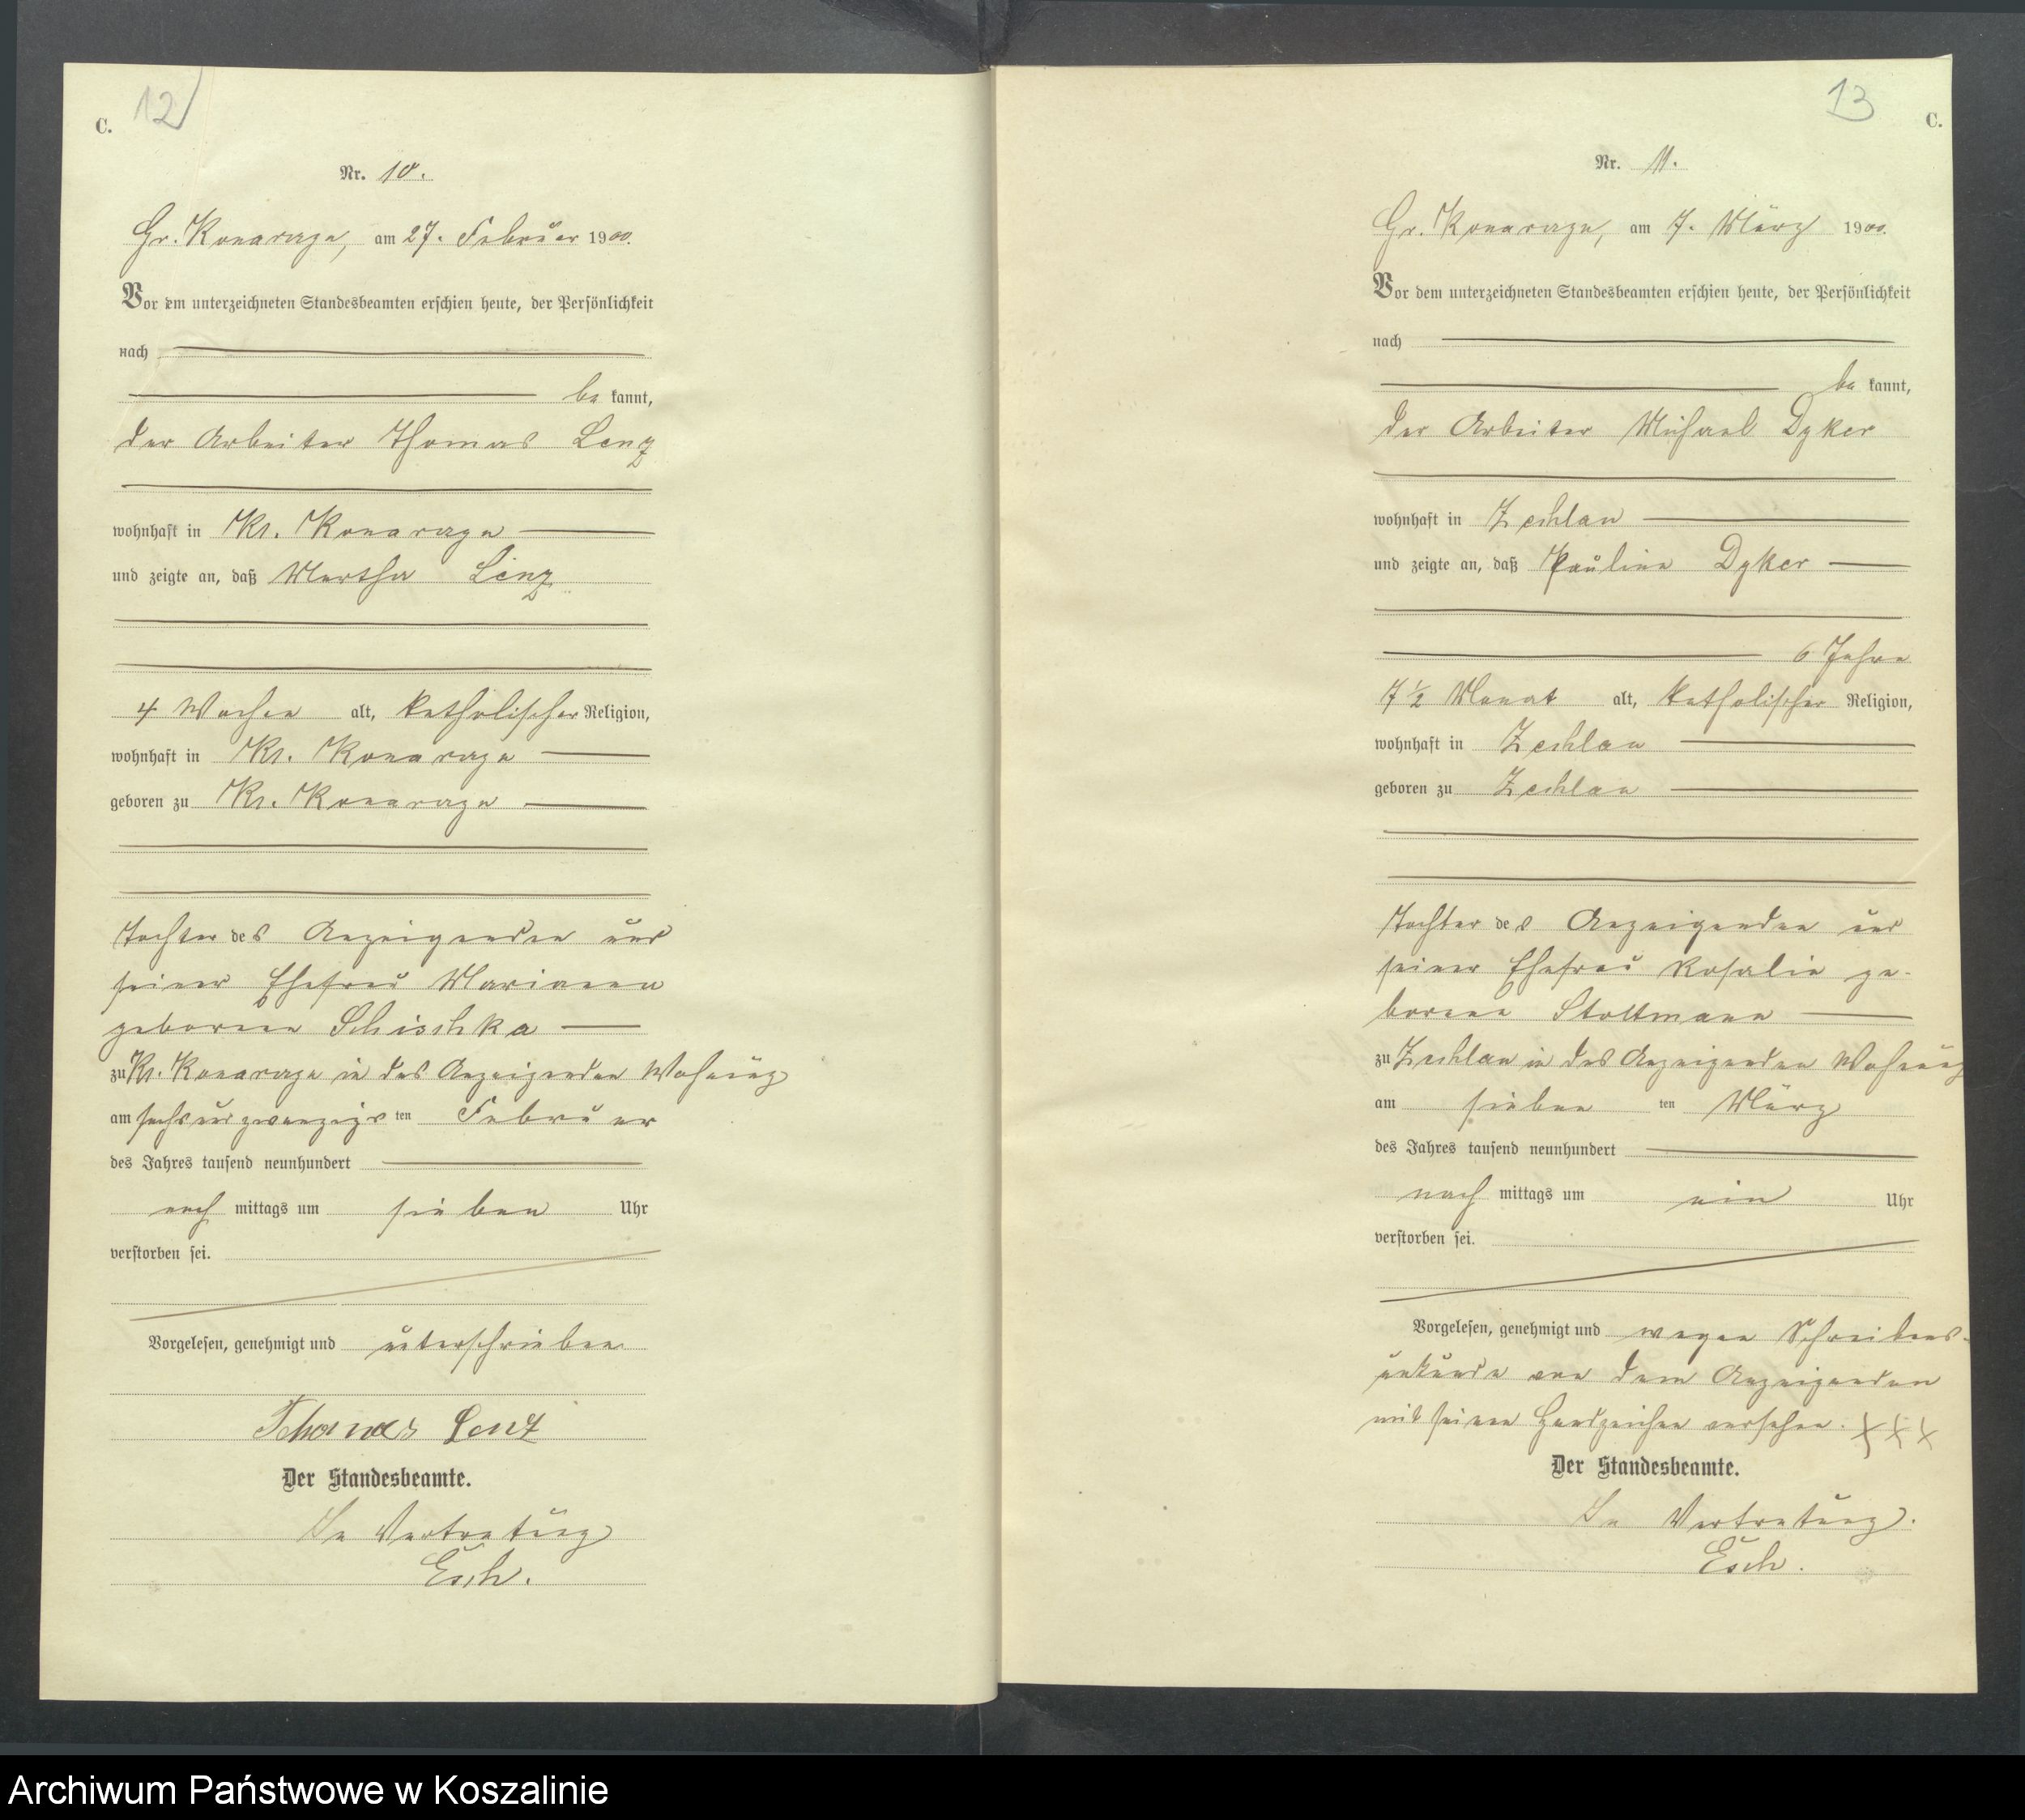 12
C.
Nr. 10.
Gr. Konarzyn, am 27. Februar 1900.
Vor dem unterzeichneten Standesbeamten erschien heute, der Persönlichkeit
nach
be kannt,
der Arbeiter Thomas Lenz
wohnhaft in Kl. Konarzyn
und zeigte an, daß Martha Lenz
4 Wochen alt, katholischer Religion,
wohnhaft in Kl. Konarzyn
geboren zu Kl. Konarzyn
Tochter des Anzeigenden und
seiner Ehefrau Marianna
geborene Schischka
zu Kl. Konarzyn in des Anzeigenden Wohnung
am sechsundzwanzigs ten Februar
des Jahres tausend neunhundert
nach mittags um sieben Uhr
verstorben sei.
Vorgelesen, genehmigt und unterschrieben
Thomas Lenz
Der Standesbeamte.
In Vertretung
Esch.
13
C.
Nr. 11.
Gr. Konarzyn, am 7. März 1900.
Vor dem unterzeichneten Standesbeamten erschien heute, der Persönlichkeit
nach
be kannt,
der Arbeiter Michael Dyker
wohnhaft in Zechlau
und zeigte an, daß Pauline Dyker
6 Jahre
7 ½ Monat alt, katholischer Religion,
wohnhaft in Zechlau
geboren zu Zechlau
Tochter des Anzeigenden und
seiner Ehefrau Rosalie ge-
borene Stoltmann
zu Zechlau in des Anzeigenden Wohnung
am sieben ten März
des Jahres tausend neunhundert
nach mittags um ein Uhr
verstorben sei.
Vorgelesen, genehmigt und wegen Schreibens-
unkunde von dem Anzeigenden
mit seinen Handzeichen versehen. XXX
Der Standesbeamte.
In Vertretung.
Esch.
Archiwum Państwowe w Koszalinie